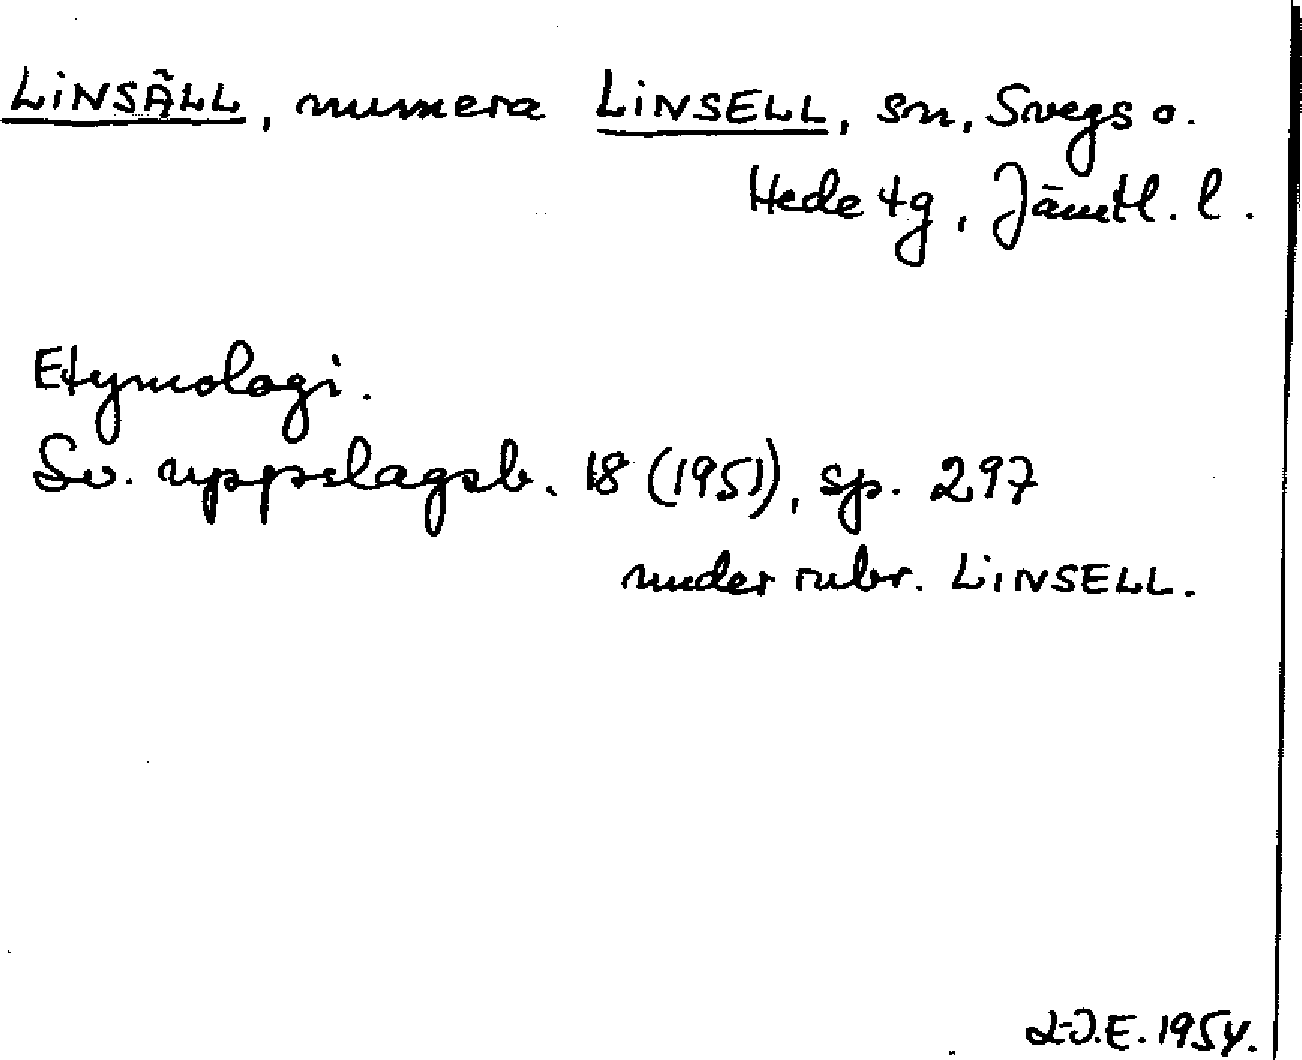 LINSÄLL, numera LINSELL, sn, Svegs o.
Hede tg, Jämtl. l.
Etymologi.
Sv. uppslagsb. 18 (1951), sp. 297
under rubr. LINSELL.
L-J.E. 1954.